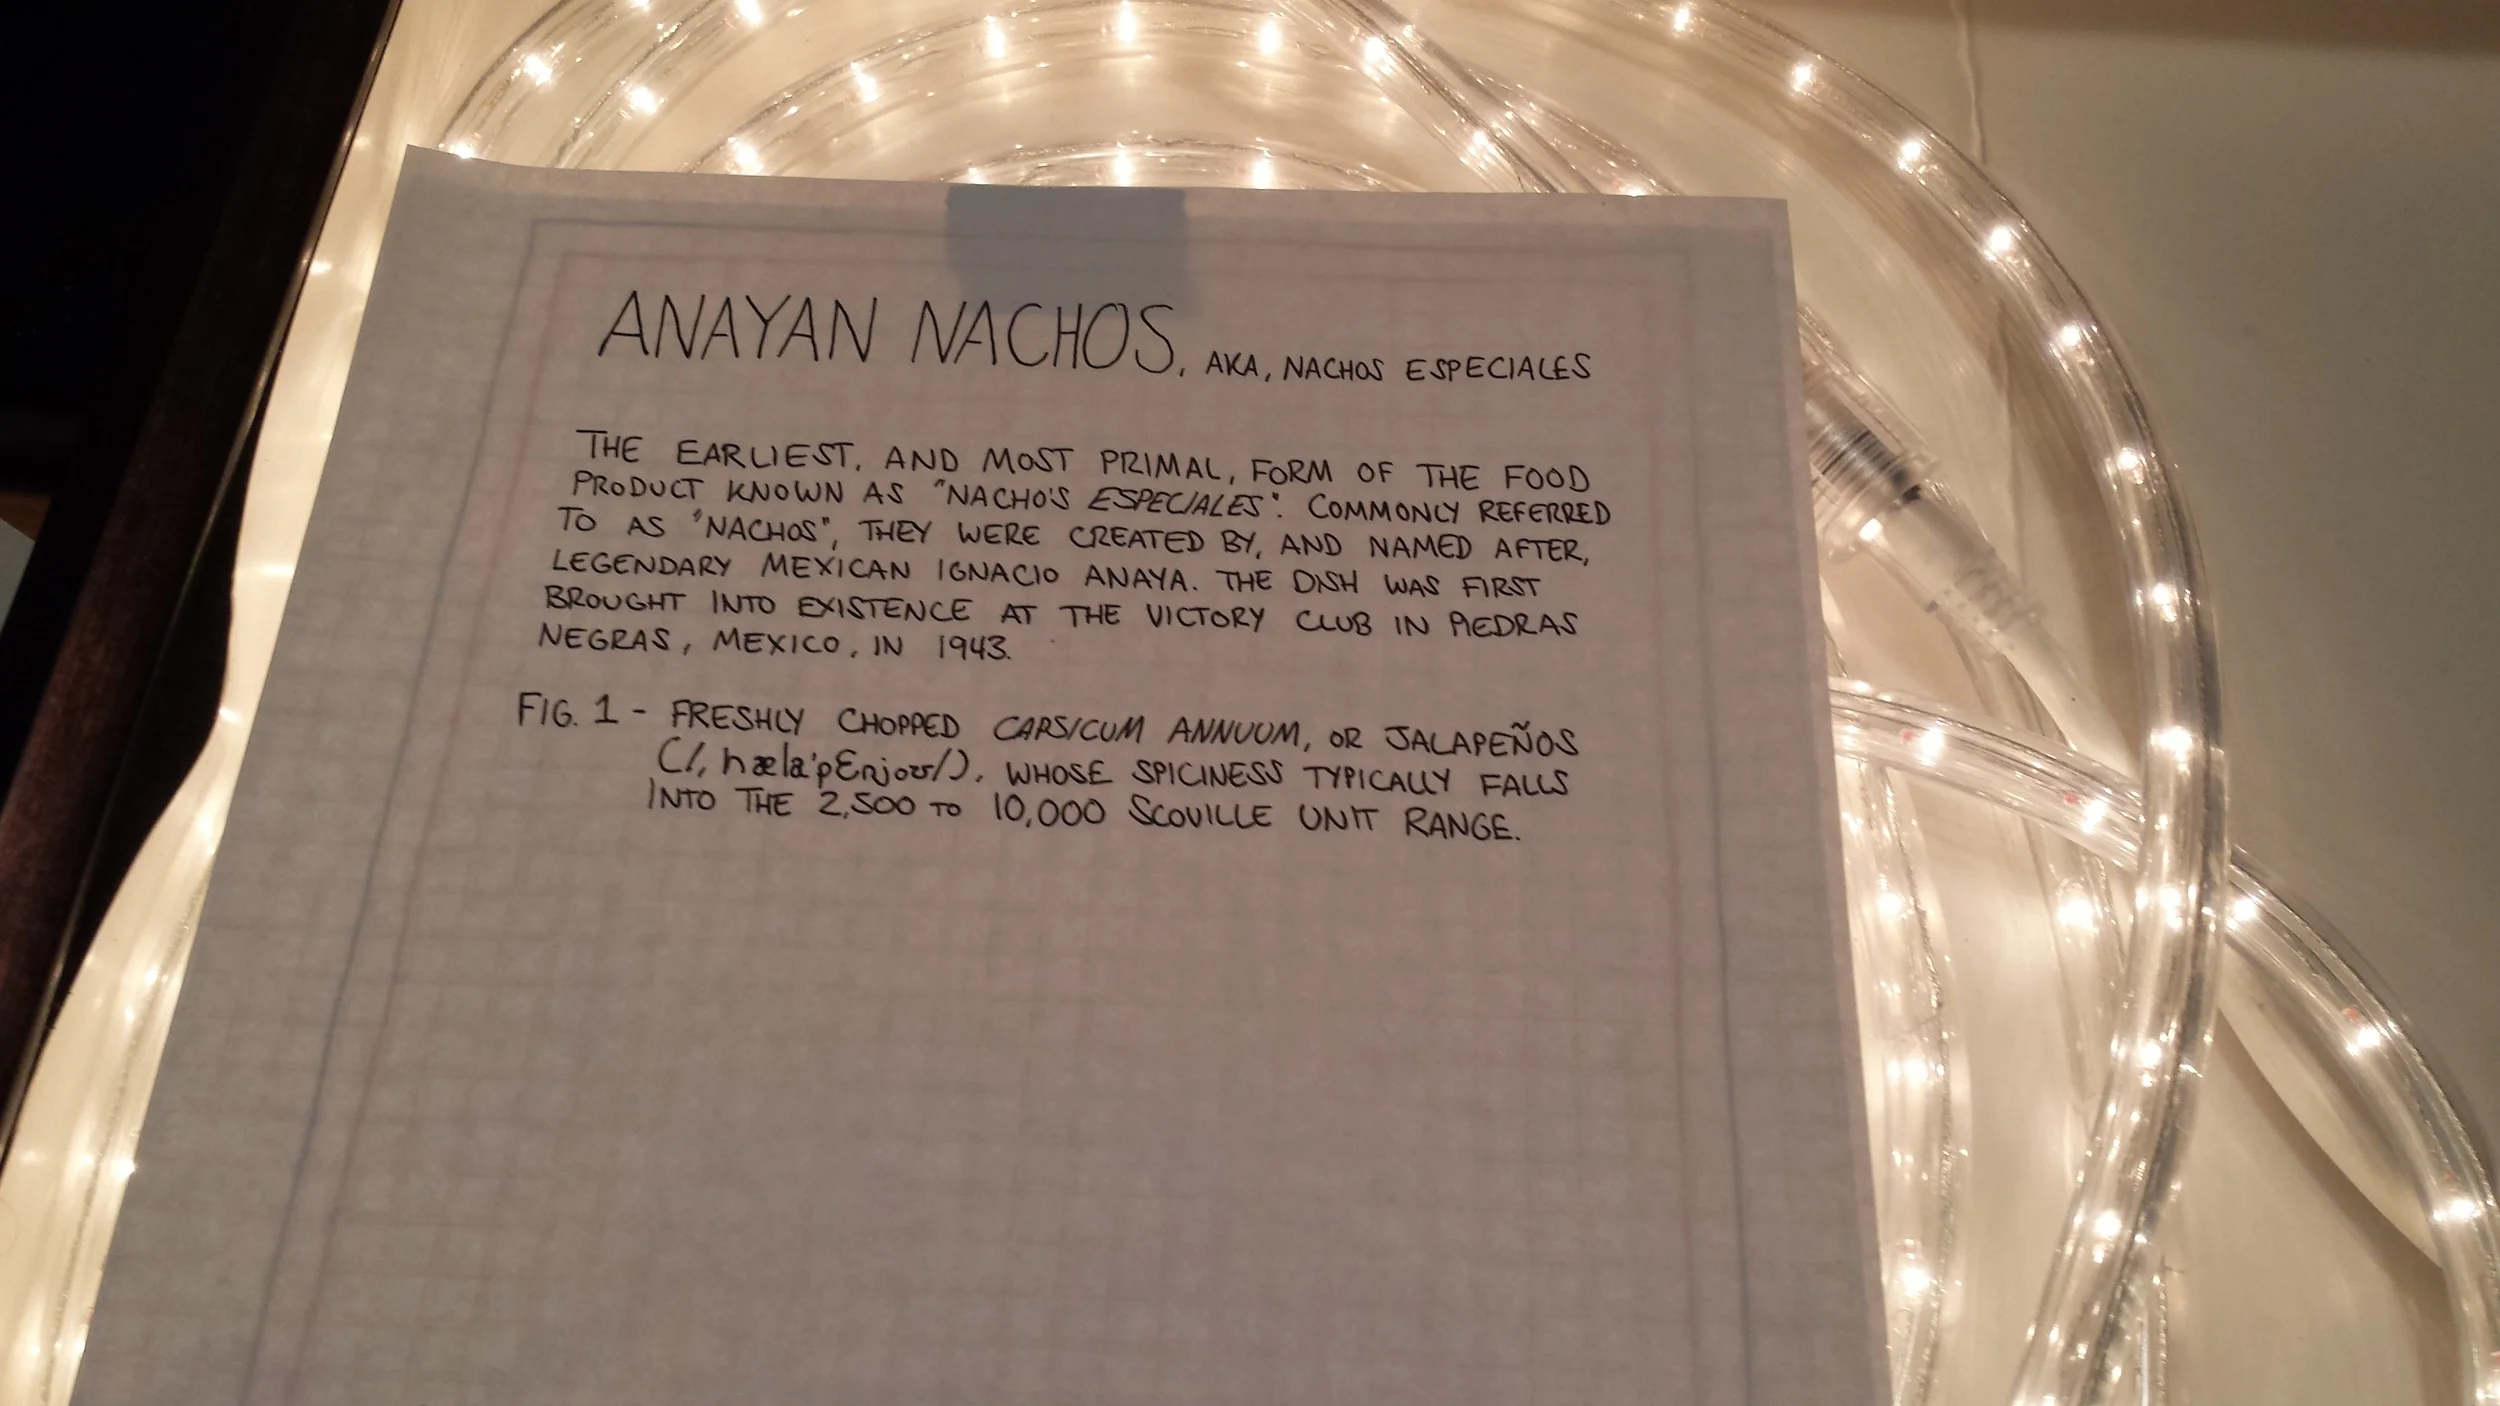 ANAYAN NACHOS, AKA, NACHOS ESPECIALES
THE EARLIEST, AND MOST PRIMAL, FORM OF THE FOOD
PRODUCT KNOWN AS "NACHO'S ESPECIALES". COMMONLY REFERRED
TO AS "NACHOS", THEY WERE CREATED BY, AND NAMED AFTER,
LEGENDARY MEXICAN IGNACIO ANAYA. THE DISH WAS FIRST
BROUGHT INTO EXISTENCE AT THE VICTORY CLUB IN PIEDRAS
NEGRAS, MEXICO, IN 1943.
FIG. 1 - FRESHLY CHOPPED CAPSICUM ANNUUM, OR JALAPEÑOS
(/ˌhæləˈpɛnjoʊ/), WHOSE SPICINESS TYPICALLY FALLS
INTO THE 2,500 TO 10,000 SCOVILLE UNIT RANGE.